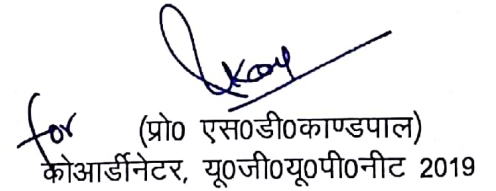 for (प्रो० एस०डी०काण्डपाल)
कोआर्डीनेटर, यू०जी०यू०पी०नीट 2019